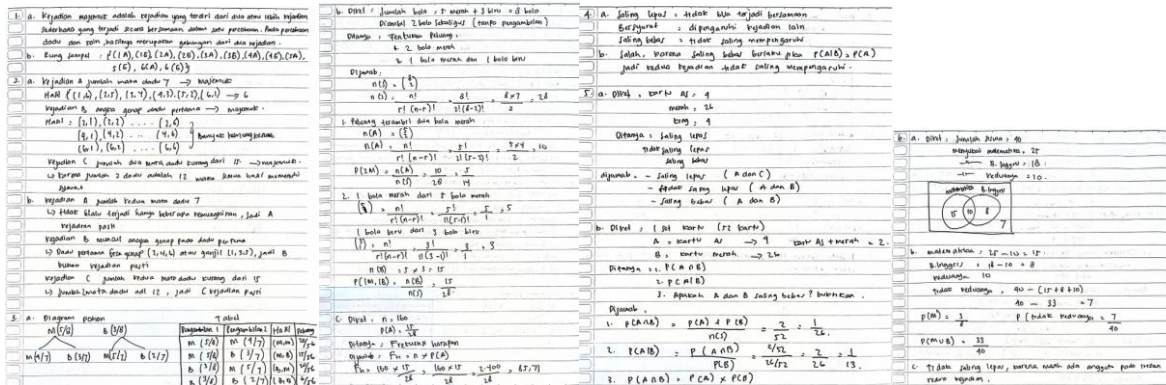 1. a. Kejadian majemuk adalah kejadian yang terdiri dari dua atau lebih kejadian
sederhana yang terjadi secara bersamaan dalam satu percobaan. Pada percobaan
dadu dan koin, hasilnya merupakan gabungan dari dua kejadian.
b. Ruang sampel : {(1A), (1G), (2A), (2G), (3A), (3G), (4A), (4G), (5A),
5(G), 6(A), 6(G)}
2. a. Kejadian A jumlah mata dadu 7 → majemuk
Hasil {(1,6), (2,5), (3,4), (4,3), (5,2), (6,1) → 6
kejadian B angka genap dadu pertama → majemuk.
Hasil : (2,1), (2,2) .... (2,6)
(4,1), (4,2) ... (4,6)
(6,1), (6,2) .... (6,6)
Banyak kemungkinan
kejadian C jumlah dua mata dadu kurang dari 15 → majemuk.
↳ karena jumlah 2 dadu adalah 12 maka semua hasil memenuhi
syarat
b. kejadian A jumlah kedua mata dadu 7
↳ tidak selalu terjadi hanya beberapa kemungkinan, jadi A
kejadian pasti
kejadian B muncul angka genap pada dadu pertama
↳ Dadu pertama bisa genap (2,4,6) atau ganjil (1,3,5), jadi B
bukan kejadian pasti
kejadian C jumlah kedua mata dadu kurang dari 15
↳ jumlah mata dadu adl 12, jadi C kejadian pasti
3. a. Diagram pohon
M(5/8) B(3/8)
M(4/7) B(3/7) M(5/7) B(2/7)
Tabel
Pengambilan 1 Pengambilan 2 Hasil Peluang
M (5/8) M (4/7) (M,M) 20/56
M (5/8) B (3/7) (M,B) 15/56
B (3/8) M (5/7) (B,M) 15/56
B (3/8) B (2/7) (B,B) 6/56
b. Diket : Jumlah bola : 5 merah + 3 biru = 8 bola
Diambil 2 bola sekaligus (tanpa pengambilan)
Ditanya : Tentukan Peluang.
1. 2 bola merah
2. 1 bola merah dan 1 bola biru
Dijawab,
n(S) = (8 2)
n(S) = n! / r!(n-r)! = 8! / 2!(8-2)! = 8x7 / 2 = 28
1. Peluang terambil dua bola merah
n(A) = (5 2)
n(A) = n! / r!(n-r)! = 5! / 2!(5-2)! = 5x4 / 2 = 10
P(2M) = n(A) / n(S) = 10 / 28 = 5 / 14
2. 1 bola merah dari 5 bola merah
(5 1) = n! / r!(n-r)! = 5! / 1!(5-1)! = 5 / 1 = 5
1 bola biru dari 3 bola biru
(3 1) = n! / r!(n-r)! = 3! / 1!(3-1)! = 3 / 1 = 3
n(B) = 5 x 3 = 15
P(1M, 1B) = n(B) / n(S) = 15 / 28
c. Diket : n = 160
P(A) = 15 / 28
Ditanya = Frekuensi harapan
Dijawab = Fh = n x P(A)
Fh = 160 x 15 / 28 = 160 x 15 / 28 = 2.400 / 28 = 85,71
4. a. Saling lepas = tidak bisa terjadi bersamaan
Bersyarat = dipengaruhi kejadian lain
Saling bebas = tidak saling mempengaruhi
b. Salah, karena saling bebas berlaku jika P(A|B) = P(A)
jadi kedua kejadian tidak saling mempengaruhi.
5. a. Diket, kartu AS, 4
merah, 26
king, 4
Ditanya : saling lepas
tidak saling lepas
saling bebas
dijawab. - Saling lepas (A dan C)
- tidak saling lepas (A dan B)
- Saling bebas (A dan B)
b. Diket : 1 set kartu (52 kartu)
A = kartu AS → 4 kartu AS + merah = 2.
B = kartu merah → 26
Ditanya = 1. P(A∩B)
2. P(A|B)
3. Apakah A dan B saling bebas? buktikan.
Dijawab,
1. P(A∩B) = P(A) + P(B) / n(S) = 2 / 52 = 1 / 26.
2. P(A|B) = P(A∩B) = 2/52 / 26/52 = 2 / 26 = 1 / 13.
3. P(A∩B) = P(A) x P(B)
6. a. Diket, jumlah siswa = 40
menyukai matematika, 25
B. Inggris = 18.
keduanya = 10.
matematika B. Inggris
15 10 8
7
b. matematika = 25 - 10 = 15.
B. Inggris = 18 - 10 = 8
keduanya 10
tidak keduanya, 40 - (15+8+10)
40 - 33 = 7
P(M) = P(tidak keduanya) = 7 / 40
P(M∪B) = 33 / 40
c. tidak saling lepas, karena masih ada anggota pada irisan
kejadian.